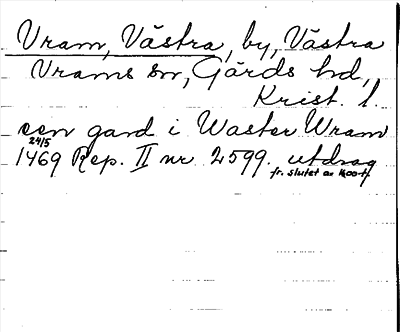 Vram, Västra, by, Västra
Vrams sn, Gärds hd,
Krist. l.
een gard i Waster Wram
24/5
1469 Rep. II nr 2599. utdrag
fr. slutet av 1400-t.